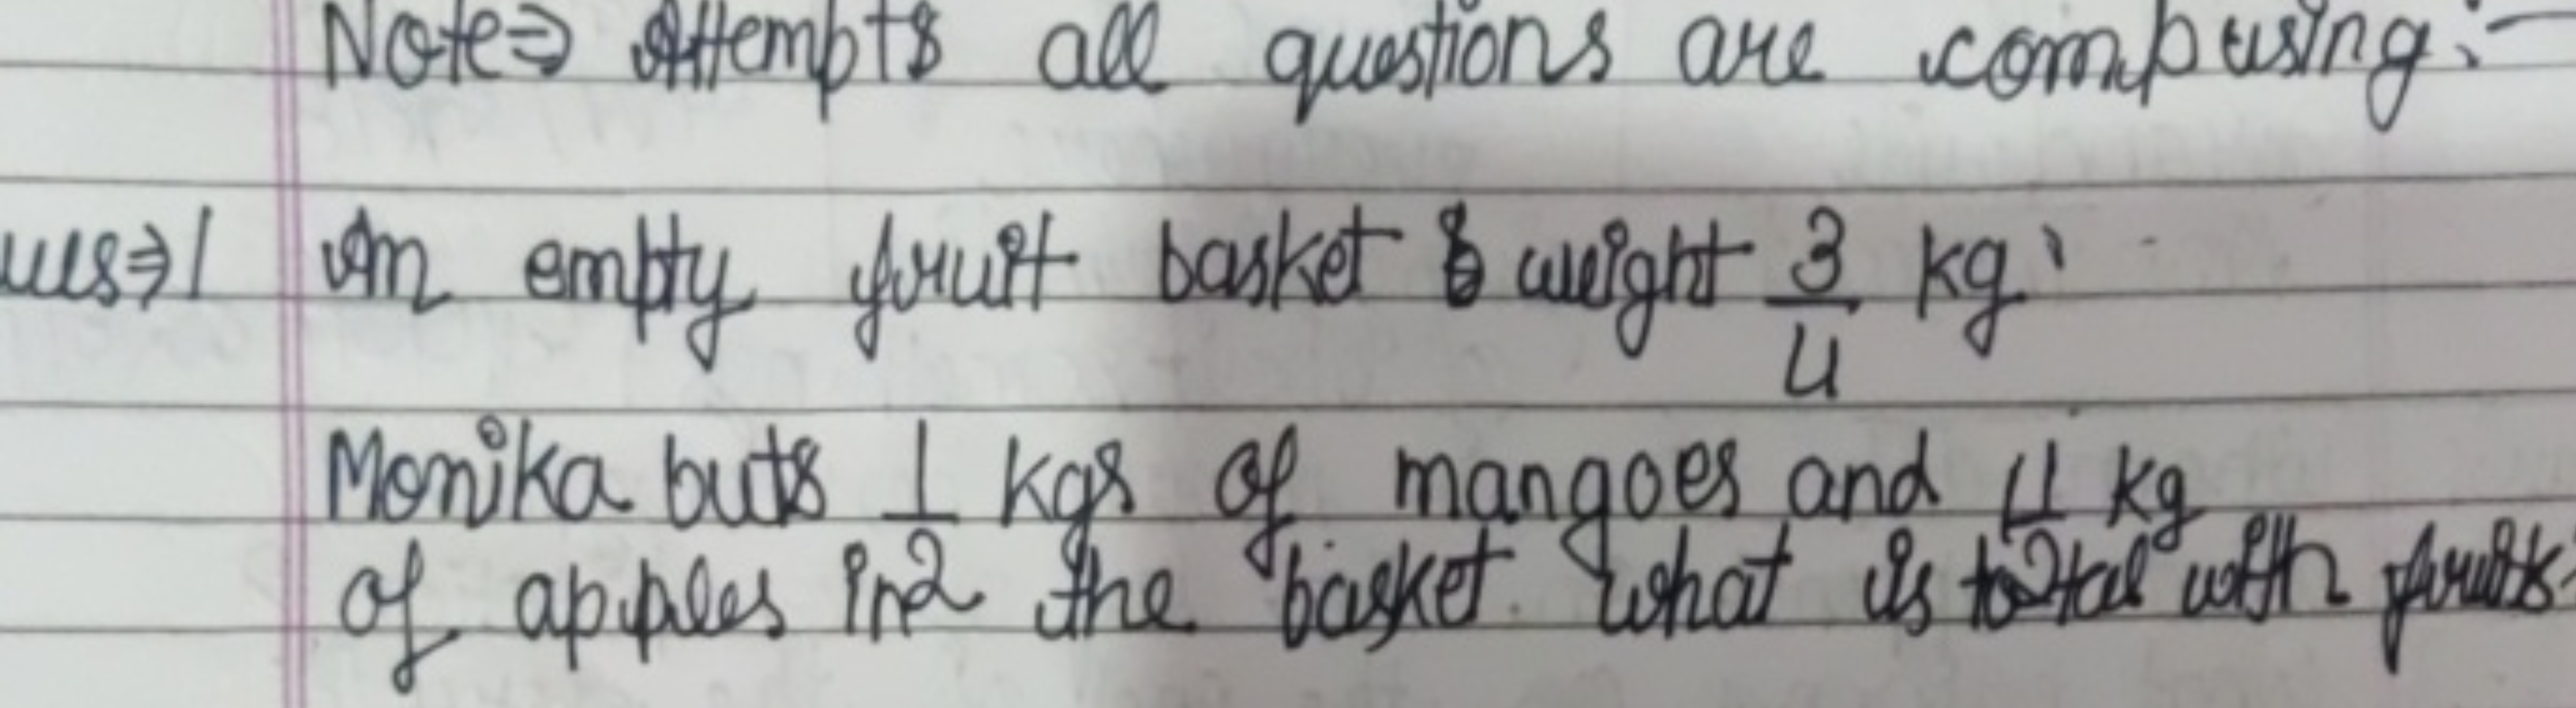 Note⇒ Attempts all questions are compusing:-
ues⇒1 An empty fruit basket weight 3/4 kg.
Monika buts 1/2 kgs of mangoes and 11/2 kg
of apples in the basket. What is total with fruits